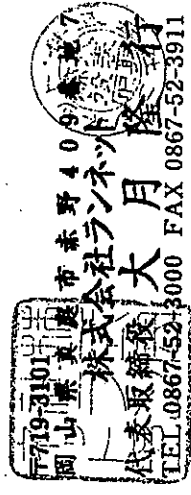 〒719-3101
岡山県真庭市赤野409番地7
株式会社ランネット
代表取締役 大月隆行
TEL 0867-52-3000 FAX 0867-52-3911